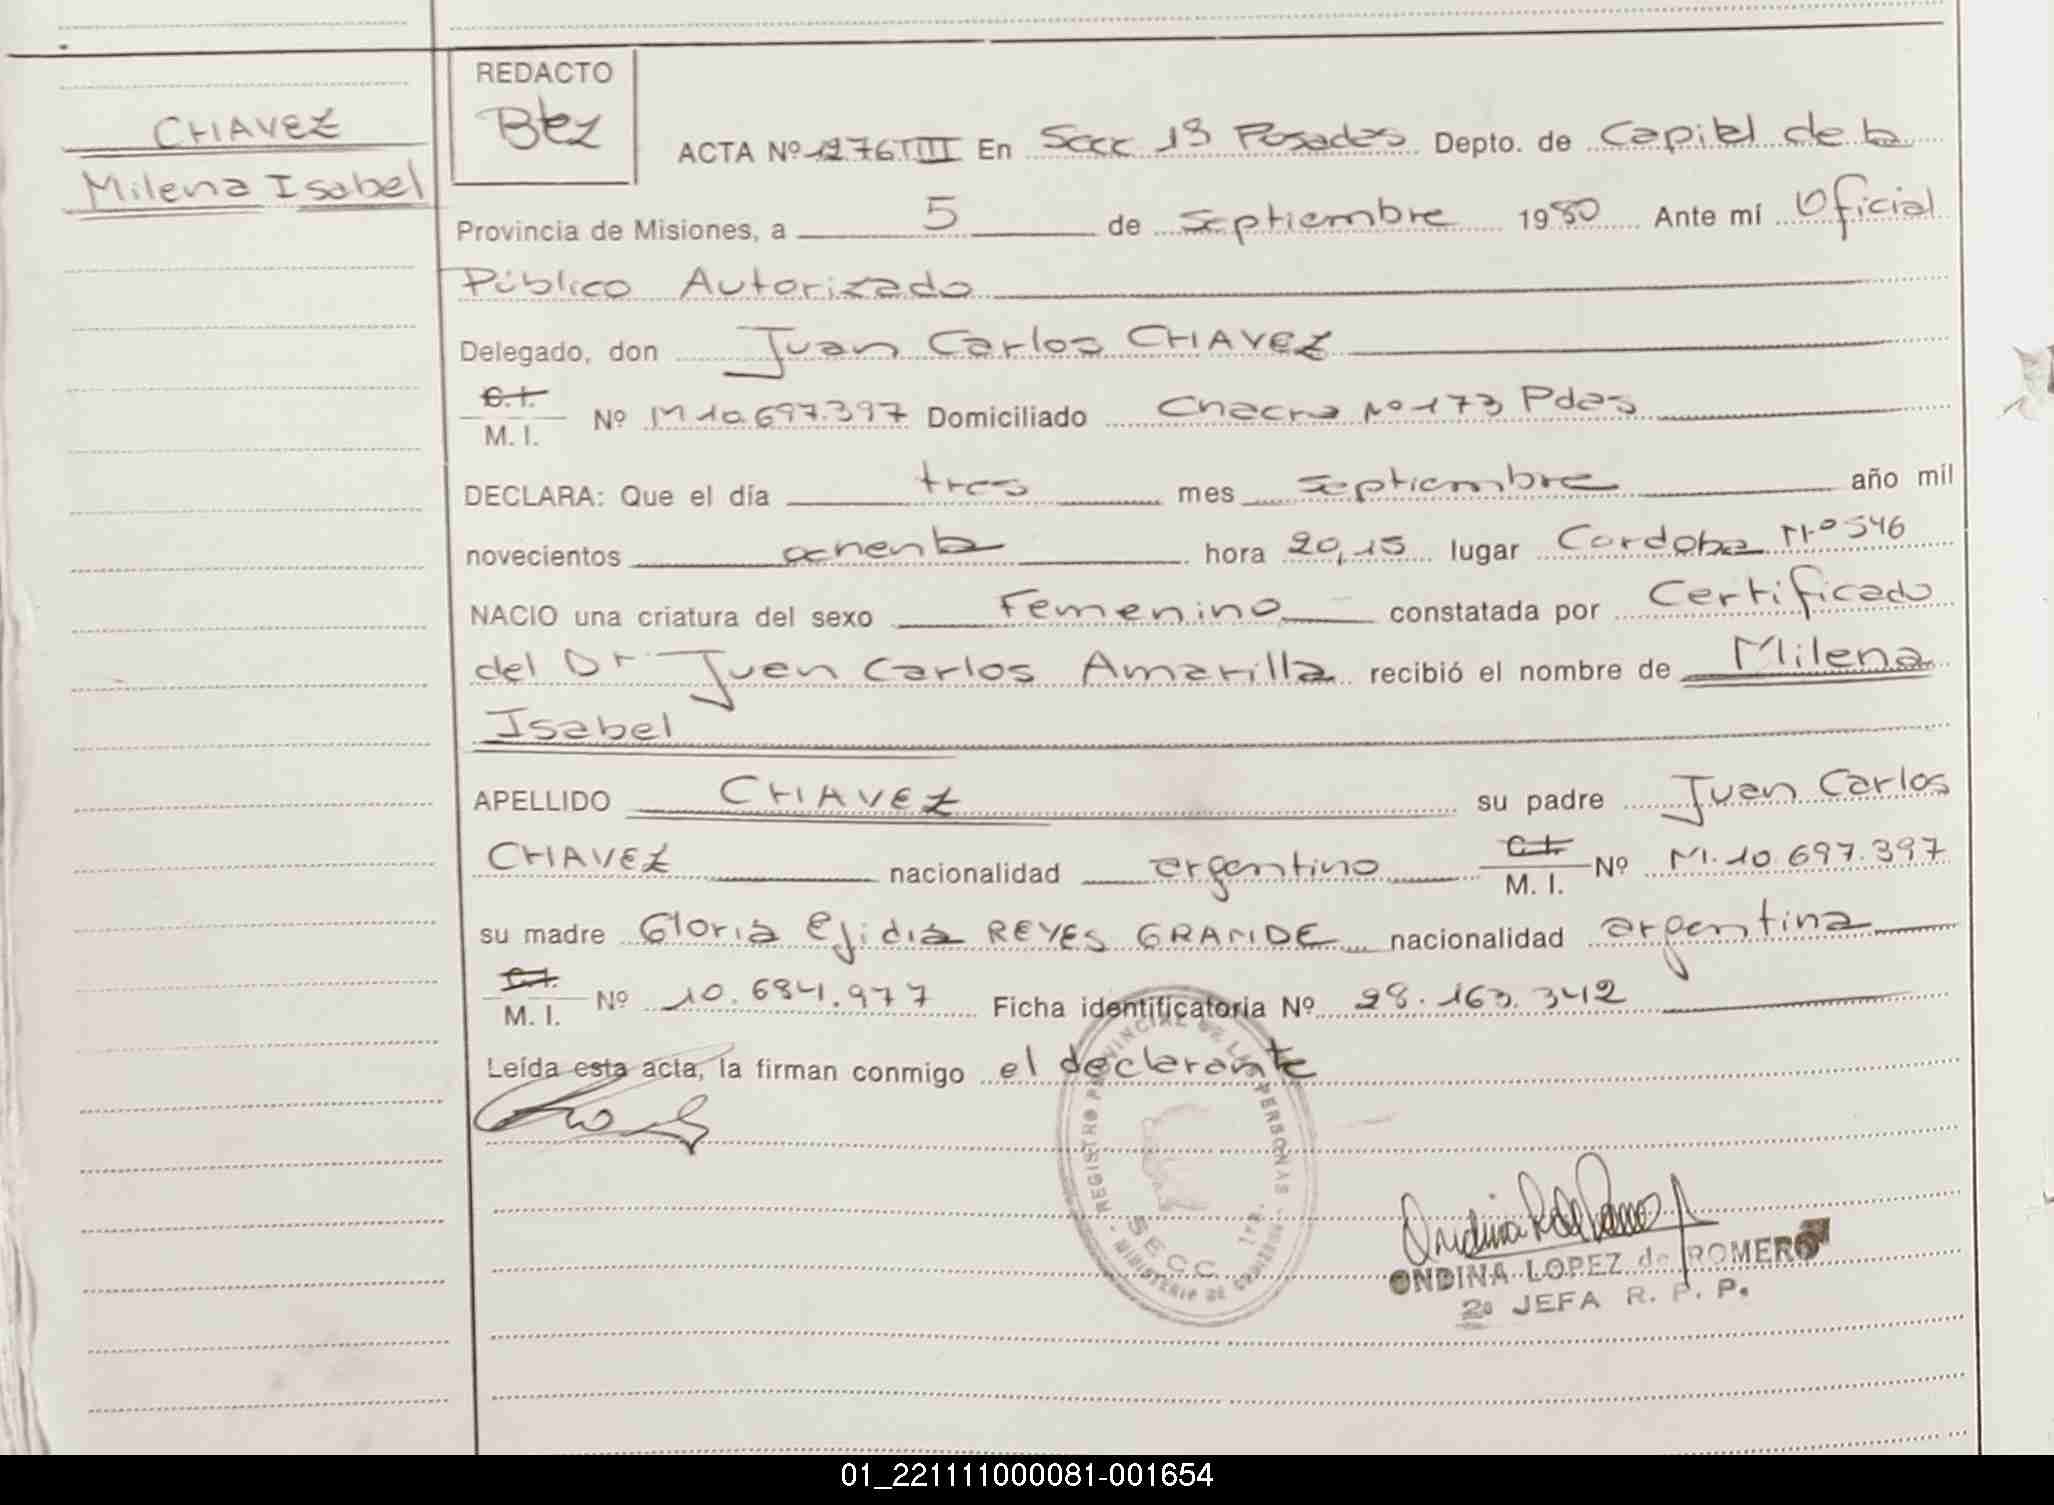 CHAVEZ
Milena Isabel
REDACTO
Btez
ACTA Nº 1276 TIII En Secc 1ª Posadas Depto. de Capital de la
Provincia de Misiones, a 5 de septiembre 1980 Ante mí Oficial
Público Autorizado
Delegado, don Juan Carlos CHAVEZ
C.I.
M. I. Nº M 10.697.397 Domiciliado Chacra Nº 173 Pdas
DECLARA: Que el día tres mes septiembre año mil
novecientos ochenta hora 20,15 lugar Cordoba Nº 546
NACIO una criatura del sexo Femenino constatada por Certificado
del Dr Juan Carlos Amarilla recibió el nombre de Milena
Isabel
APELLIDO CHAVEZ su padre Juan Carlos
CHAVEZ nacionalidad argentino C.I. M. I. Nº M.10.697.397
su madre Gloria Ejidia REYES GRANDE nacionalidad argentina
C.I.
M. I. Nº 10.684.977 Ficha identificatoria Nº 28.163.342
Leída esta acta, la firman conmigo el declarante
REGISTRO PROVINCIAL DE LAS PERSONAS
SECC. 1ra.
MINISTERIO DE GOBIERNO
ONDINA LOPEZ de ROMERO
2a JEFA R. P. P.
01_221111000081-001654